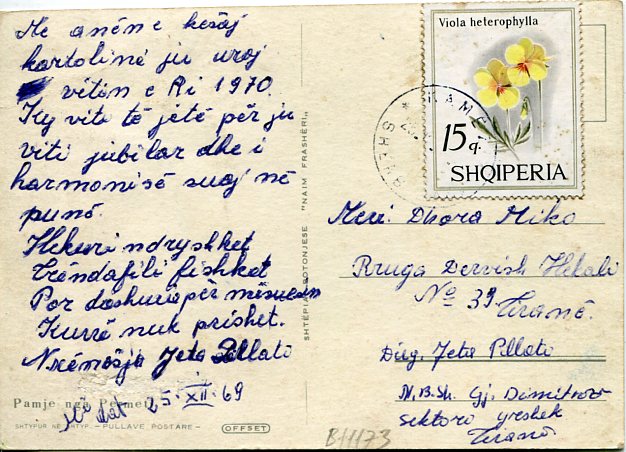 Me anëne kësaj
kartolinë ju uroj
vitin e Ri 1970.
Ky vite të jetë për ju
viti jubilar dhe i
harmonisë suaj në
punë.
Hekuri ndryshket
Trëndafili fishket
Por dashuria për mësuesin
Kurrë nuk prishet.
Nxënësja Jeta Pllato
më dat 25-XII-69
Pamje nga Përmeti
SHTYPUR NË SHTYP. - PULLAVE POSTARE - OFFSET
SHTËPIA BOTONJESE "NAIM FRASHËRI"
Viola heterophylla
15 q.
SHQIPERIA
KAMEZ
SHBSH
Meri Dhora Miko
Rruga Dervish Hekali
No 39 Tiranë.
Dërg. Jeta Pllato
N.B.Sh. Gj. Dimitrov
sektori yrshek
Tiranë
B/1173